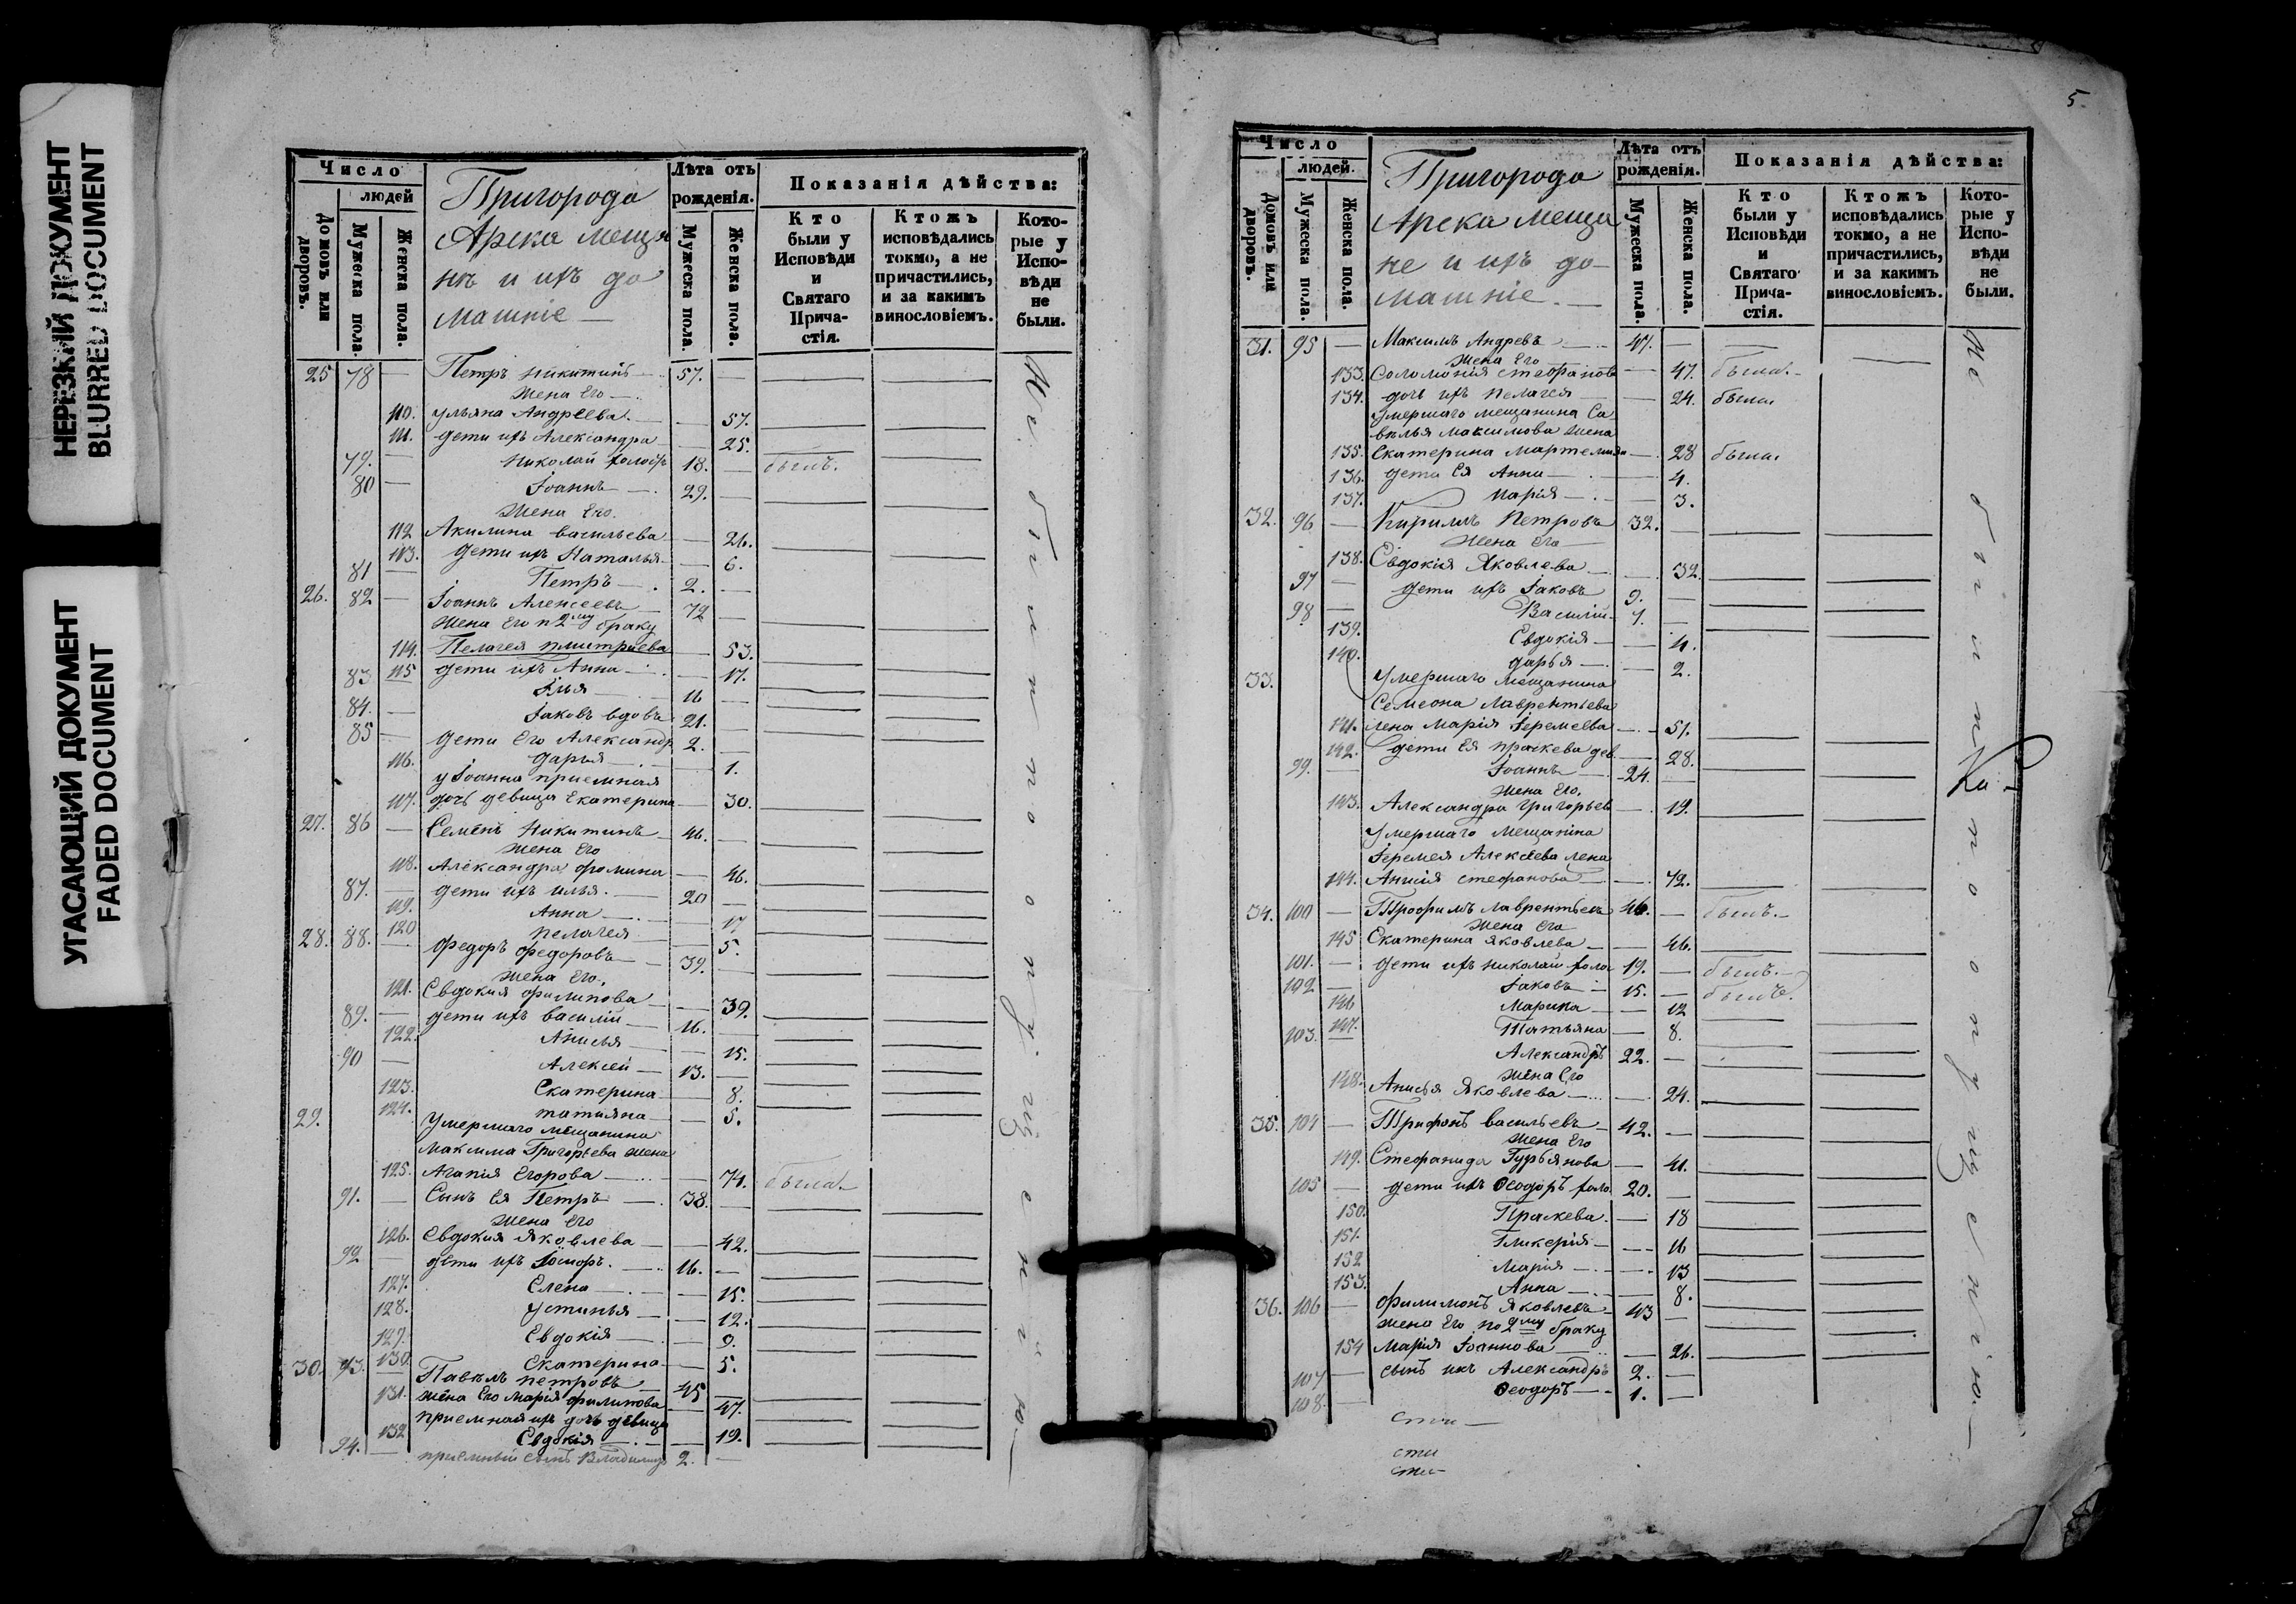 НЕРЕЗКИЙ ДОКУМЕНТ
BLURRED DOCUMENT
УГАСАЮЩИЙ ДОКУМЕНТ
FADED DOCUMENT
Число
людей
Домовъ или дворовъ.
Мужеска пола.
Женска пола.
Пригорода
Арска меща
нѣ и ихъ до
машніе —
Лѣта отъ рожденія.
Мужеска пола.
Женска пола.
Показанія дѣйства:
Кто были у Исповѣди и Святаго Прича-стія.
Ктожъ исповѣдались токмо, а не причастились, и за какимъ винословіемъ.
Кото-рые у Испо-вѣди не были.
25 78 — Петръ Никитинъ — 57. —
Жена Его —
110. Ульяна Андреева. — 57.
111. дети ихъ Александра — 25.
79. — Николай холостъ 18. — былъ.
80 — Іоаннъ — 29. —
Жена Его.
112 Акилина васильева — 26.
113. дети ихъ Наталья — 6.
81 — Петръ — 2. —
26. 82 — Іоаннъ Алексеевъ 72 —
Жена Его п 2му браку
114. Пелагея дмитриева — 53.
115 дети ихъ Анна — 17.
83 Илья — 16 —
84. — Іаковъ вдовъ 21. —
85 — дети Его Александръ 2. —
116. дарья — 1.
у Іоанна приемная
117. дочь девица Екатерина — 30.
27. 86 — Семенъ Никитинъ 46. —
Жена Его
118. Александра фомина — 46.
87. — дети ихъ илья. — 20 —
119. Анна — 17
120 пелагея — 5.
28. 88. — Федоръ Федоровъ — 39. —
Жена Его,
121. Евдокия филипова — 39.
89. — дети ихъ василій — 16. —
122. Анисья — 15.
90 — Алексей — 13. —
123. Екатерина — 8.
124. татияна — 5.
29. Умершаго мещанина
Максима Григорьева жена
125. Агапія Егорова — 74. была. —
91. — Сынъ Ея Петръ — 38. —
Жена Его
126. Евдокия Яковлева — 42.
92 дети ихъ — 16. —
127. Елена — 15.
128. Устинья — 12.
129. Евдокія — 9.
130. Екатерина — 5.
30. 93. — Павелъ петровъ — 45 —
131. жена Его Марія филипова — 47.
приемная ихъ дочь девица
132 Евдокія — 19.
94. — приемный сынъ Владимиръ 2. —
Не были по опущенію —
5
Число
людей.
Домовъ или дворовъ.
Мужеска пола.
Женска пола.
Пригорода
Арска меща
не и ихъ до—
машніе. —
Лѣта отъ рожденія.
Мужеска пола.
Женска пола.
Показанія дѣйства:
Кто были у Исповѣди и Святаго Прича-стія.
Ктожъ исповѣдались токмо, а не причастились, и за какимъ винословіемъ.
Кото-рые у Испо-вѣди не были.
31. 95 — Максимъ Андревъ — 47. —
Жена Его
133. Соломонія стефанова — 47. была. —
134. дочь ихъ пелагея — 24. была
Умершаго мещанина Са
велья Максимова жена
135. Екатерина — 28 была
136. дети Ея Анна — 4.
137. Марія — 3.
32. 96 — Кирилъ Петровъ 32. —
Жена его —
138. Евдокія Яковлева — 32.
97 — дети ихъ Іаковъ 9. —
98 — Василій — 7. —
139. Евдокія — 4.
140. дарья — 2.
33. Умершаго мещанина
Семеона Лаврентьева
141. жена Марія Іеремеева — 51.
142. дети Ея праскева дев. — 28.
99. — Іоаннъ — 24. —
Жена Его,
143. Александра григорьев — 19.
Умершаго мещанина
Іеремея Алексеева жена
144. Анисія стефанова — 72.
34. 100 — Трофимъ лаврентьевъ 46. — былъ. —
Жена Его
145 Екатерина яковлева — 46.
101. — дети ихъ николай холос 19. — былъ. —
102 — Іаковъ — 15. — былъ.
146 Марина — 12
147. Татьяна — 8.
103. — Александръ 22. —
Жена Его
148. Анисья Яковлева — 24.
35. 104 — Трифонъ васильевъ — 42. —
Жена Его
149. Стефанида Гурьянова — 41.
105 — дети ихъ Феодоръ холо. 20. —
150. Праскева. — 18
151. Гликерія — 16
152 Марія — 13
153. Анна — 8.
36. 106 — Филимонъ Яковлевъ — 43 —
жена Его по 2му браку
154 Марія Іоаннова — 26.
107 — сынъ ихъ Александръ 2. —
108. — Феодоръ — 1. —
Не были по опущенію —